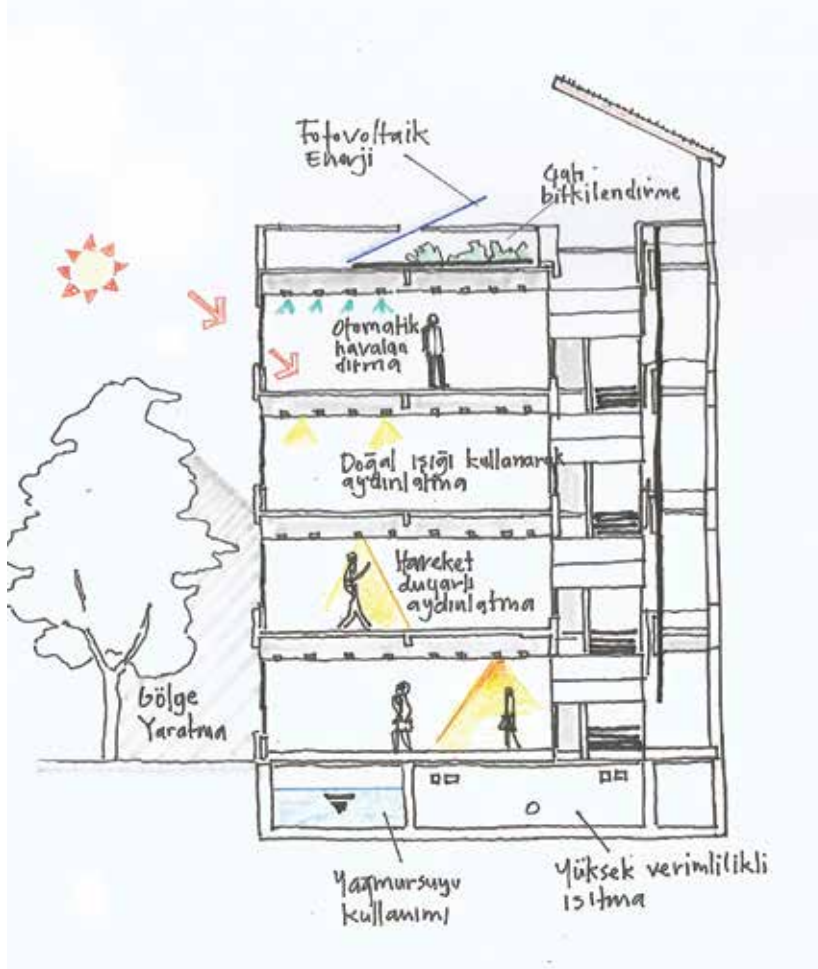 Fotovoltaik
Enerji
Çatı
bitkilendirme
Otomatik
havalan
dırma
Doğal ışığı kullanarak
aydınlatma
Hareket
duyarlı
aydınlatma
Gölge
Yaratma
Yağmursuyu
kullanımı
Yüksek verimlilikli
ısıtma